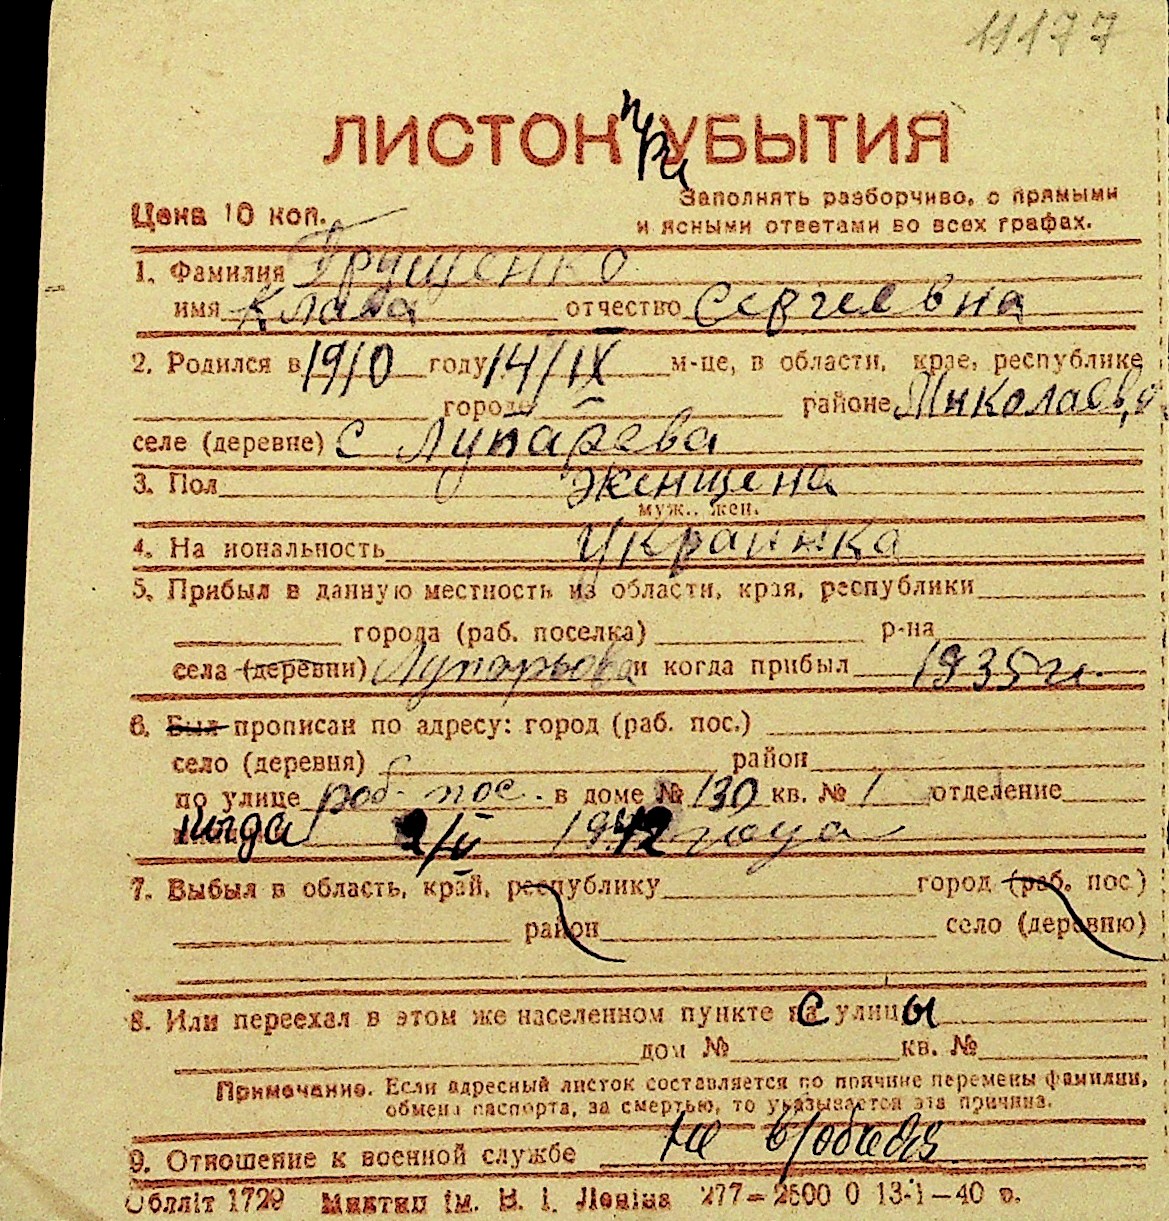 11177
ЛИСТОК при УБЫТИЯ
Цена 10 коп.
Заполнять разборчиво, с прямыми
и ясными ответами во всех графах.
1. Фамилия Грущенко
имя Клава отчество Сергиевна
2. Родился в 1910 году 14/IX м-це, в области, крае, республике
городе районе Николаев.о
селе (деревне) с Лупарева
3. Пол Женщена
муж.. жен.
4. На иональность Украинка
5. Прибыл в данную местность из области, края, республики
города (раб. поселка) р-на
села (деревни) Лупарьова и когда прибыл 1935 г.
6. Был прописан по адресу: город (раб. пос.)
село (деревня) район
по улице роб. пос. в доме № 130 кв. № 1 отделение
когда 2/V 1942 года
7. Выбыл в область, край, республику город (раб. пос.)
район село (деревню)
8. Или переехал в этом же населенном пункте с улицы
дом № кв. №
Примечание. Если адресный листок составляется по причине перемены фамилии,
обмена паспорта, за смертью, то указывается эта причина.
9. Отношение к военной службе не
Облліт 1729 Миктип ім. В. І. Леніна 277—2500 0 13-1—40 р.